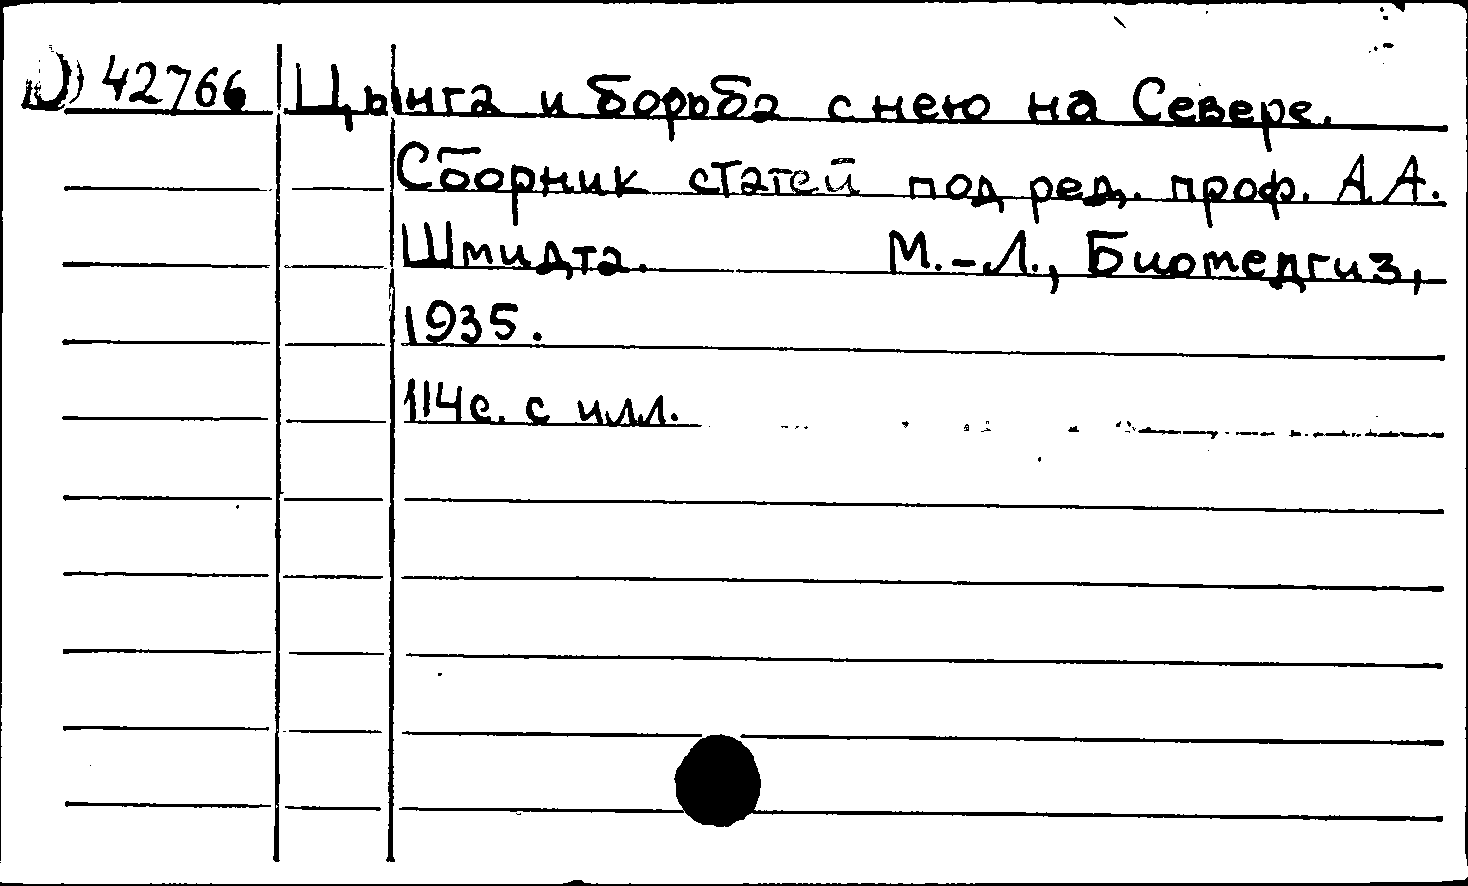 42766 Цынга и борьба с нею на Севере.
Сборник статей под ред. проф. А.А.
Шмидта. М.-Л., Биомедгиз,
1935.
114с. с илл.